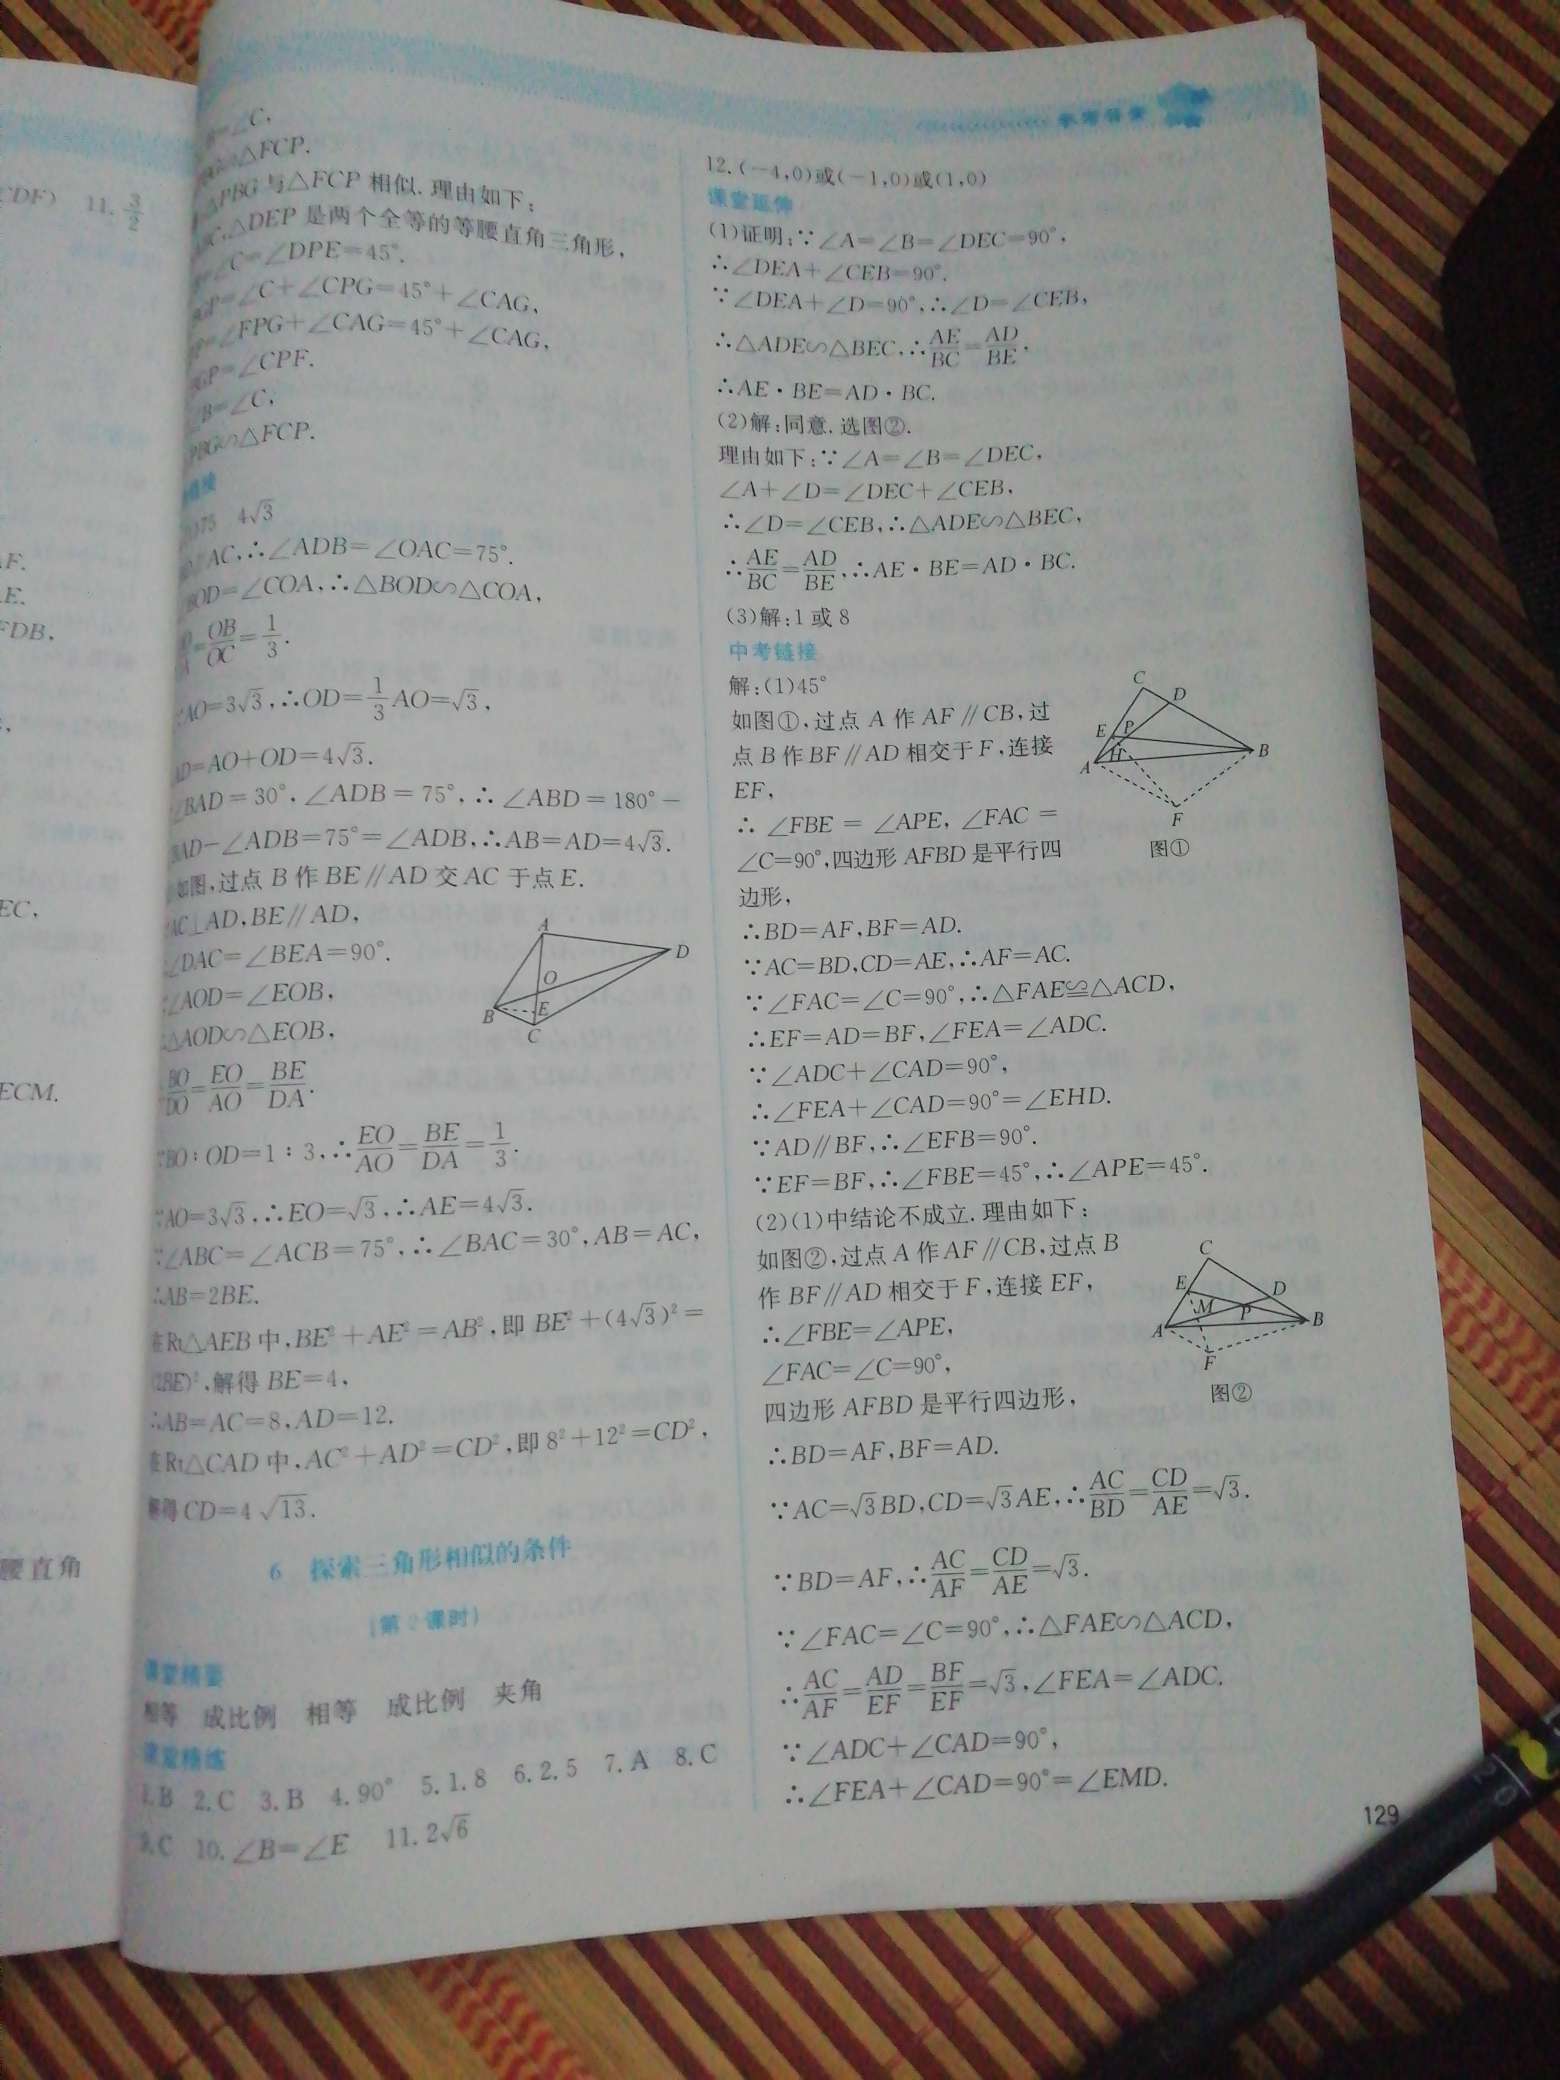 CDF) 11. 3/2
F.
E.
FDB,
EC,
ECM.
腰直角
参考答案
=∠C,
△FCP.
△PBG与△FCP相似.理由如下:
△DEP是两个全等的等腰直角三角形,
=∠C=∠DPE=45°.
GP=∠C+∠CPG=45°+∠CAG,
=∠FPG+∠CAG=45°+∠CAG,
GP=∠CPF.
∠B=∠C,
PBG∽△FCP.
75 4√3
AC,∴∠ADB=∠OAC=75°.
BOD=∠COA,∴△BOD∽△COA,
=OB/OC=1/3.
AO=3√3,∴OD=1/3AO=√3,
AD=AO+OD=4√3.
∠BAD=30°,∠ADB=75°,∴∠ABD=180°-
BAD-∠ADB=75°=∠ADB,∴AB=AD=4√3.
如图,过点B作BE∥AD交AC于点E.
AC⊥AD,BE∥AD,
∠DAC=∠BEA=90°.
∠AOD=∠EOB,
△AOD∽△EOB,
BO/DO=EO/AO=BE/DA.
BO:OD=1:3,∴EO/AO=BE/DA=1/3.
∵AO=3√3,∴EO=√3,∴AE=4√3.
∵∠ABC=∠ACB=75°,∴∠BAC=30°,AB=AC,
∴AB=2BE.
在Rt△AEB中,BE²+AE²=AB²,即BE²+(4√3)²=
(2BE)²,解得BE=4,
∴AB=AC=8,AD=12.
在Rt△CAD中,AC²+AD²=CD²,即8²+12²=CD²,
解得CD=4√13.
A
D
O
B
E
C
6 探索三角形相似的条件
(第2课时)
课堂精要
相等 成比例 相等 成比例 夹角
课堂精练
1.B 2.C 3.B 4.90° 5.1.8 6.2.5 7.A 8.C
9.C 10.∠B=∠E 11.2√6
12.(-4,0)或(-1,0)或(1,0)
课堂延伸
(1)证明:∵∠A=∠B=∠DEC=90°,
∴∠DEA+∠CEB=90°.
∵∠DEA+∠D=90°,∴∠D=∠CEB,
∴△ADE∽△BEC,∴AE/BC=AD/BE,
∴AE·BE=AD·BC.
(2)解:同意.选图②.
理由如下:∵∠A=∠B=∠DEC,
∠A+∠D=∠DEC+∠CEB,
∴∠D=∠CEB,∴△ADE∽△BEC,
∴AE/BC=AD/BE,∴AE·BE=AD·BC.
(3)解:1或8
中考链接
解:(1)45°
如图①,过点A作AF∥CB,过
点B作BF∥AD相交于F,连接
EF,
∴∠FBE=∠APE,∠FAC=
∠C=90°,四边形AFBD是平行四
边形,
∴BD=AF,BF=AD.
∵AC=BD,CD=AE,∴AF=AC.
∵∠FAC=∠C=90°,∴△FAE≌△ACD,
∴EF=AD=BF,∠FEA=∠ADC.
∵∠ADC+∠CAD=90°,
∴∠FEA+∠CAD=90°=∠EHD.
∵AD∥BF,∴∠EFB=90°.
∵EF=BF,∴∠FBE=45°,∴∠APE=45°.
C
D
E P
H
A
B
F
图①
(2)(1)中结论不成立.理由如下:
如图②,过点A作AF∥CB,过点B
作BF∥AD相交于F,连接EF,
∴∠FBE=∠APE,
∠FAC=∠C=90°,
四边形AFBD是平行四边形,
∴BD=AF,BF=AD.
∵AC=√3BD,CD=√3AE,∴AC/BD=CD/AE=√3.
∵BD=AF,∴AC/AF=CD/AE=√3.
∵∠FAC=∠C=90°,∴△FAE∽△ACD,
∴AC/AF=AD/EF=BF/EF=√3,∠FEA=∠ADC.
∵∠ADC+∠CAD=90°,
∴∠FEA+∠CAD=90°=∠EMD.
C
E
D
M
P
A
B
F
图②
129